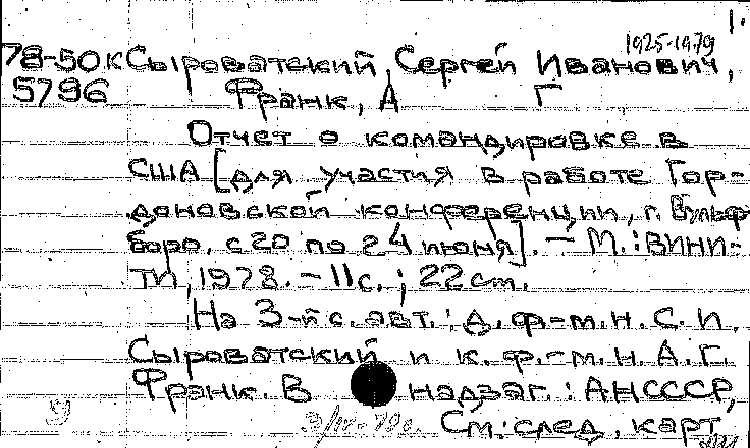 1.
1925-1979
78-50к Сыроватский, Сергей Иванович,
5796 Франк, А Г
Отчет о командировке в
США [для участия в работе Гор-
доновской конференции, г. Вульф
боро, с 20 по 24 июня]. — М.: ВИНИ-
ТИ, 1978. - 11 с. ; 22 cm.
На 3-й с. авт.: д. ф.-м. н. С. И.
Сыроватский и к. ф.-м. н. А. Г.
Франк. В надзаг.: АН СССР,
См. след. карт.